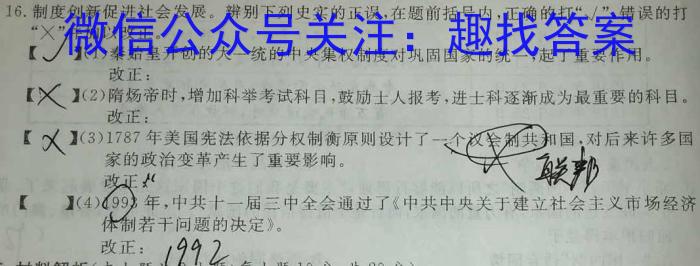 16.制度创新促进社会发展。辨别下列史实的正误,在题前括号内,正确的打“√”,错误的打
“×”
微信公众号关注：趣找答案
【√】(1)秦始皇开创的大一统的中央集权制度对巩固国家的统一,起了重要作用。
改正:
【×】(2)隋炀帝时,增加科举考试科目,鼓励士人报考,进士科逐渐成为最重要的科目。
改正:
【×】(3)1787年美国宪法依据分权制衡原则设计了一个议会制共和国,对后来许多国
家的政治变革产生了重要影响。
联邦
改正:
【 】(4)1993年,中共十一届三中全会通过了《中共中央关于建立社会主义市场经济
体制若干问题的决定》。
改正: 1992